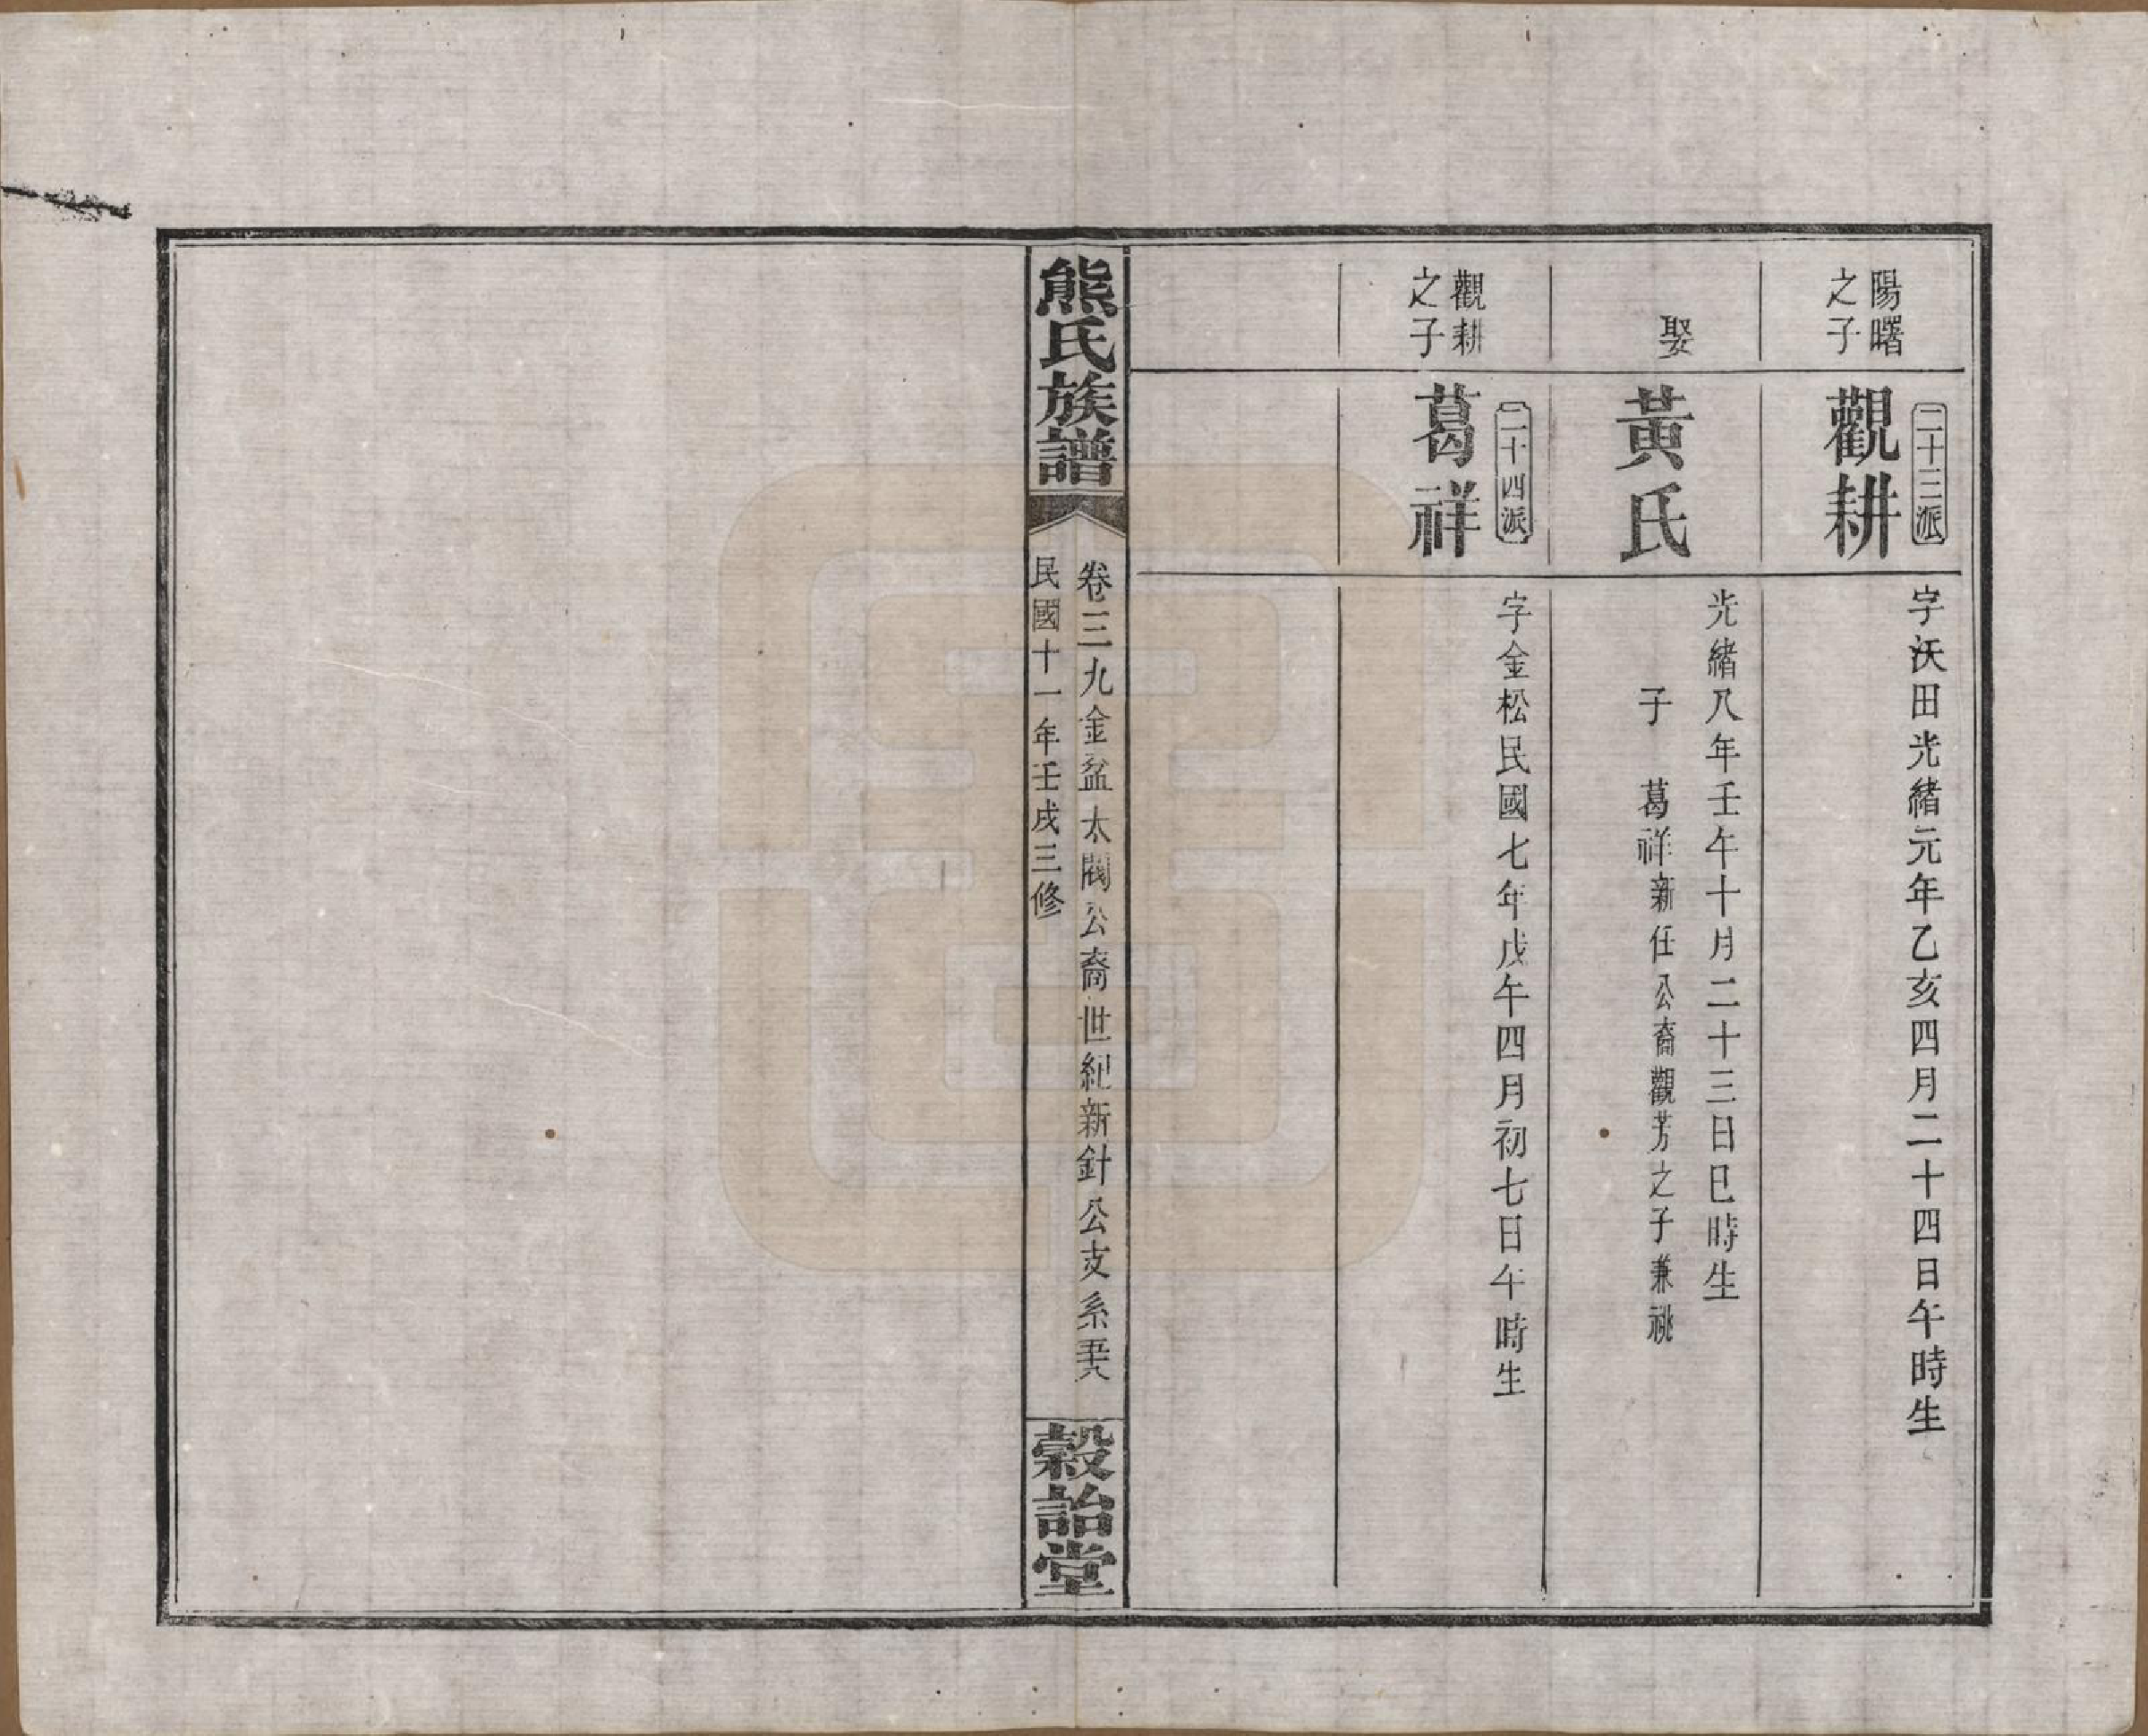 陽曙
之子
二十三派
觀耕
字沃田光緒元年乙亥四月二十四日午時生
娶
黃氏
光緒八年壬午十月二十三日巳時生
子　葛祥新任公裔觀芳之子兼祧
觀耕
之子
二十四派
葛祥
字金松民國七年戊午四月初七日午時生
熊氏族譜
卷三九金盆太閥公裔世紀新針公支系
民國十一年壬戌三修
穀詒堂